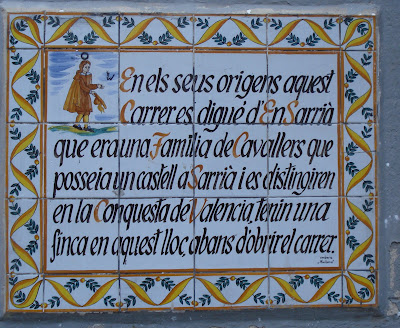 En els seus origens aquest
Carrer es digué d'En Sarrià
que era una Familia de Cavallers que
posseia un castell a Sarrià i es distingiren
en la Conquesta de Valencia, tenin una
finca en aquest lloc, abans d'obrir el carrer.